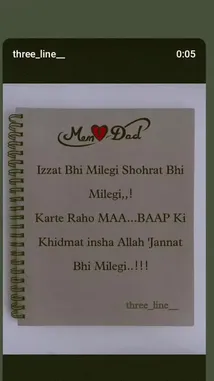 three_line__ 0:05
Mom❤Dad
Izzat Bhi Milegi Shohrat Bhi
Milegi,,!
Karte Raho MAA...BAAP Ki
Khidmat insha Allah 'Jannat
Bhi Milegi..!!!
three_line__